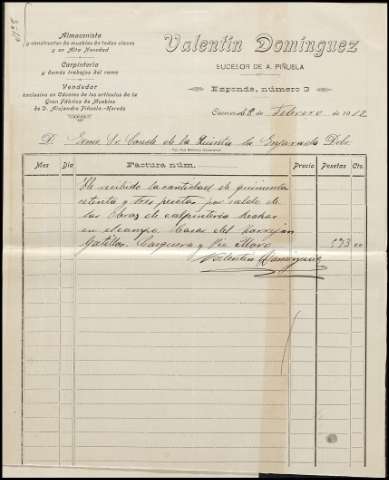 Almacenista
y constructor de muebles de todas clases
y en Alta Novedad
Carpintería
y demás trabajos del ramo
Vendedor
exclusivo en Cáceres de los artículos de la
Gran Fábrica de Muebles
de D. Alejandro Piñuela-Heredo
Valentín Domínguez
SUCESOR DE A. PIÑUELA
Esponda, número 3
Cáceres 8 de Febrero de 1912
D. Excmo Sr Conde de la Quinta de la Enjarada Debe
Mes Día Factura núm. Precio Pesetas Cts.
He recibido la cantidad de quinientas
setenta y tres pesetas por saldo de
las obras de carpintería hechas
en el campo, Casas del
Gatillo, y Pie Moro 573
Valentín Domínguez